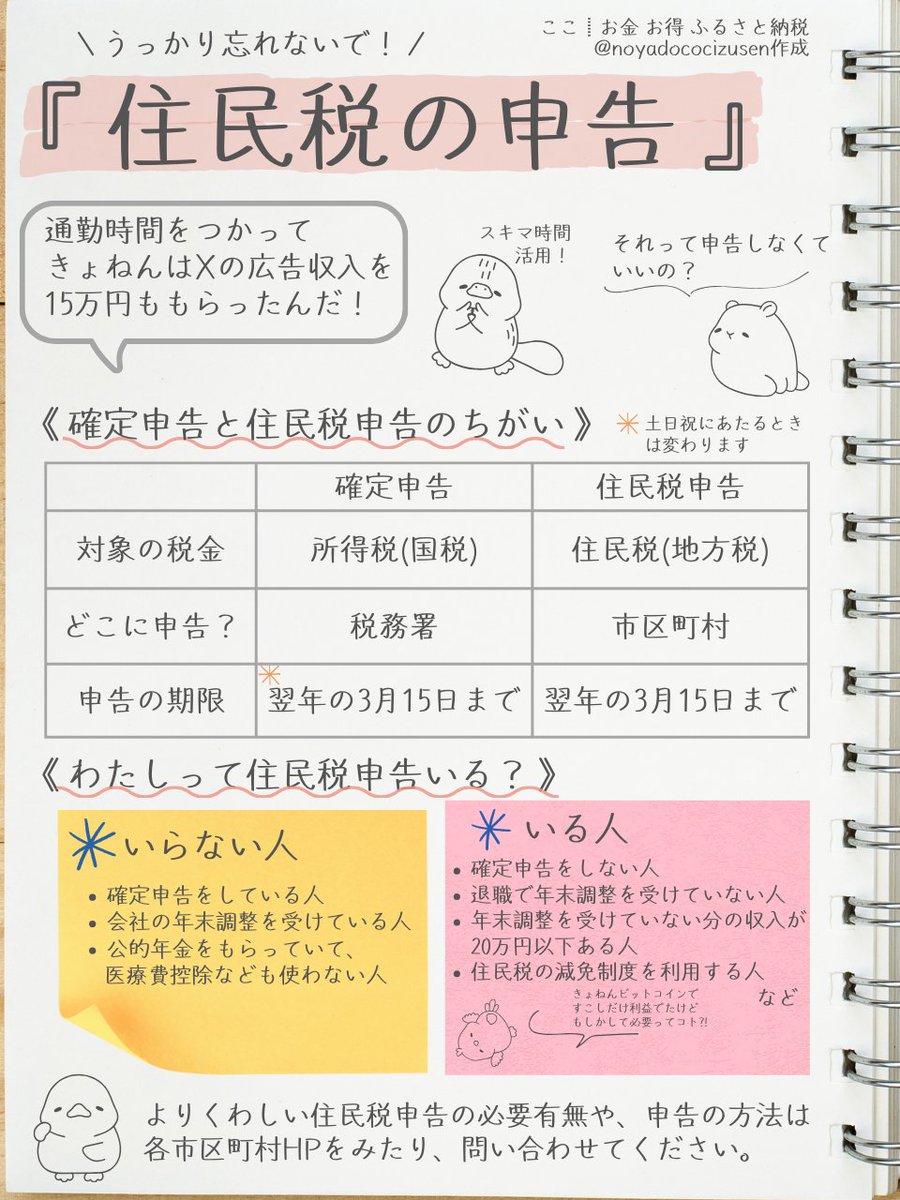 \うっかり忘れないで！/
ここ┊お金 お得 ふるさと納税
@noyadococizusen作成
『住民税の申告』
通勤時間をつかって
きょねんはXの広告収入を
15万円ももらったんだ！
スキマ時間
活用！
それって申告しなくて
いいの？
《確定申告と住民税申告のちがい》
土日祝にあたるとき
は変わります
確定申告 住民税申告
対象の税金 所得税(国税) 住民税(地方税)
どこに申告？ 税務署 市区町村
申告の期限 翌年の3月15日まで 翌年の3月15日まで
《わたしって住民税申告いる？》
いらない人
• 確定申告をしている人
• 会社の年末調整を受けている人
• 公的年金をもらっていて、
医療費控除なども使わない人
いる人
• 確定申告をしない人
• 退職で年末調整を受けていない人
• 年末調整を受けていない分の収入が
20万円以下ある人
• 住民税の減免制度を利用する人
など
きょねんビットコインで
すこしだけ利益でたけど
もしかして必要ってコト?!
よりくわしい住民税申告の必要有無や、申告の方法は
各市区町村HPをみたり、問い合わせてください。